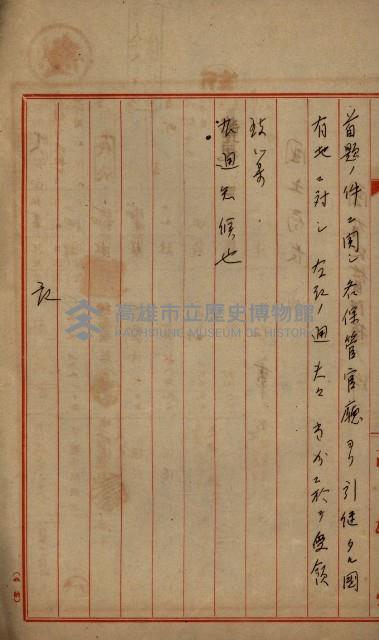 首題ノ件ニ関シ各保管官廳ヨリ引継タル國
有地ニ対シ左記ノ通夫々当局ニ於テ受領
致シ候
及通知候也
記
高雄市立歷史博物館
KAOHSIUNG MUSEUM OF HISTORY